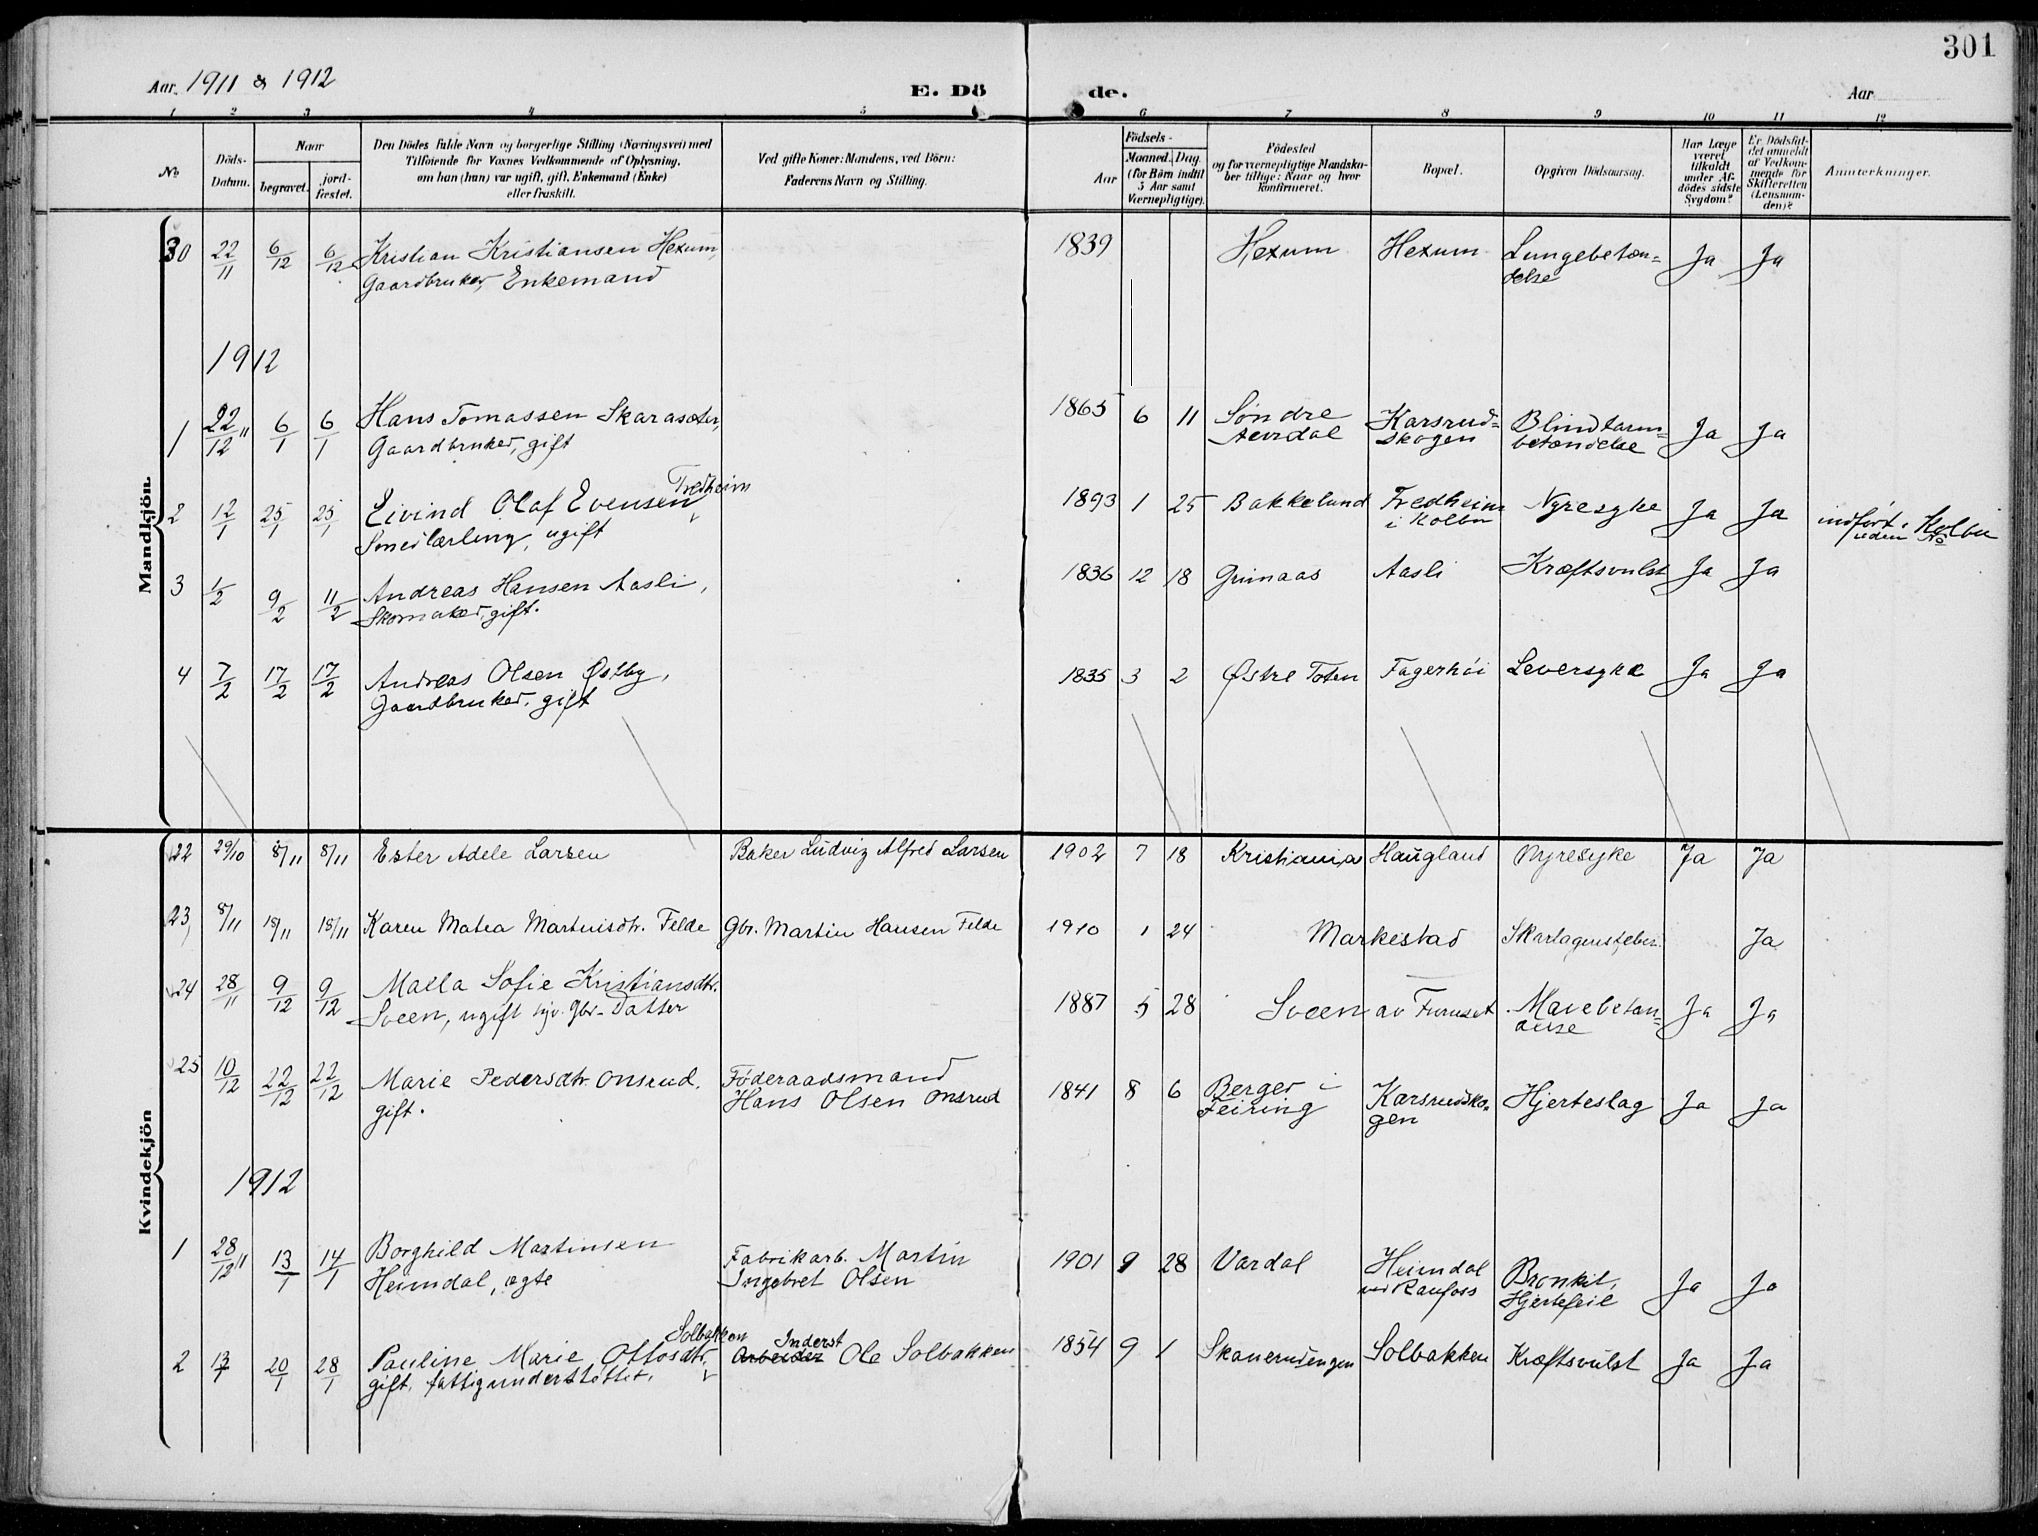 301
Aar. 1911 & 1912
E. Dö de.
Aar
1 2 3 4 5 6 7 8 9 10 11 12
No
Döds-Datum.
Naar
begravet. jord-fæstet.
Den Dödes fulde Navn og borgerlige Stilling (Næringsvei) med
Tilföiende for Voxnes Vedkommende af Oplysning,
om han (hun) var ugift, gift, Enkemand (Enke)
eller fraskilt.
Ved gifte Koner: Mandens, ved Börn:
Faderens Navn og Stilling.
Födsels-
Aar
Maaned. Dag.
(for Börn indtil
5 Aar samt
Værnepligtige).
Födested
og for værnepligtige Mandska-
ber tillige: Naar og hvor
konfirmeret.
Bopæl.
Opgiven Dödsaarsag.
Har Læge
været
tilkaldt
under Af-
dödes sidste
Sygdom?
Er Dödsfal-
det anmeldt
af Vedkom-
mende for
Skifteretten
(Lensman-
den)?
Anmærkninger.
Mandkjön.
30 22/11 6/12 6/12 Kristian Kristiansen Hexum, 1839 Hexum Hexum Lungebetæn= Ja Ja
Gaardbruker, Enkemand delse
1912
1 22/12 11 6/1 6/1 Hans Tomassen Skarasæter, 1865 6 11 Søndre Karsrud= Blindtarm= Ja Ja
Gaardbruker, gift Aurdal skogen betændelse
2 12/1 25/1 25/1 Eivind Olaf Evensen Fredheim 1893 1 25 Bakkelund Fredheim Nyresyke Ja Ja indført i Kolbu
Smedlærling, ugift i Kolbu uden No
3 1/2 9/2 11/2 Andreas Hansen Aasli, 1836 12 18 Grimaas Aasli Kræftsvulst Ja Ja
Skomaker, gift.
4 7/2 17/2 17/2 Andreas Olsen Østby, 1835 3 2 Østre Toten Fagerhøi Leversyke Ja Ja
Gaardbruker, gift
Kvindekjön
22 29/10 8/11 8/11 Ester Adele Larsen Baker Ludvig Alfred Larsen 1902 7 18 Kristiania Haugland Nyresyke Ja Ja
23 8/11 18/11 18/11 Karen Matea Martinsdtr. Felde Gbr. Martin Hansen Felde 1910 1 24 Markestad Skarlagensfeber. Ja
24 28/11 9/12 9/12 Maela Sofie Kristiansdtr. 1887 5 28 Sveen av Furuset Mavebetæn= Ja Ja
Sveen, ugift Gbr-Datter delse
25 10/12 22/12 22/12 Marie Pedersdtr. Onsrud. Føderaadsmand 1841 8 6 Berger i Karsrudsko- Hjerteslag Ja Ja
gift. Hans Olsen Onsrud Feiring gen
1912
1 28/12 11 13/1 14/1 Borghild Martinsen Fabrikarb. Martin 1901 9 28 Vardal Heimdal Bronkit, Ja Ja
Heimdal, ægte Ingebret Olsen ved Raufoss Hjertefeil
2 20/1 28/1 Pauline Marie Ottosdtr. Solbakken Arbeider Inderst Ole Solbakken 1854 9 1 Skanerudengen Solbakken Kræftsvulst Ja Ja
gift, fattigunderstøttet.